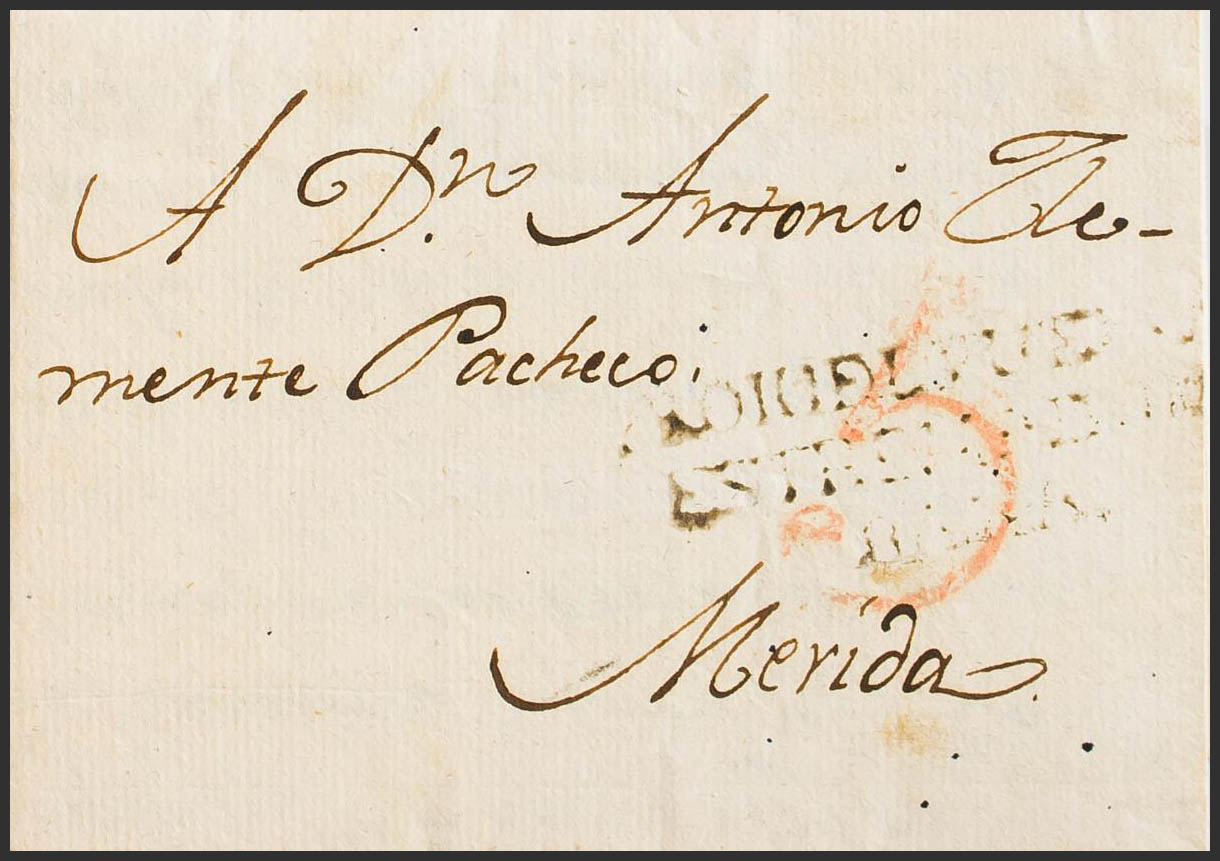 A D.ⁿ Antonio Cle-
mente Pacheco,
Merida.